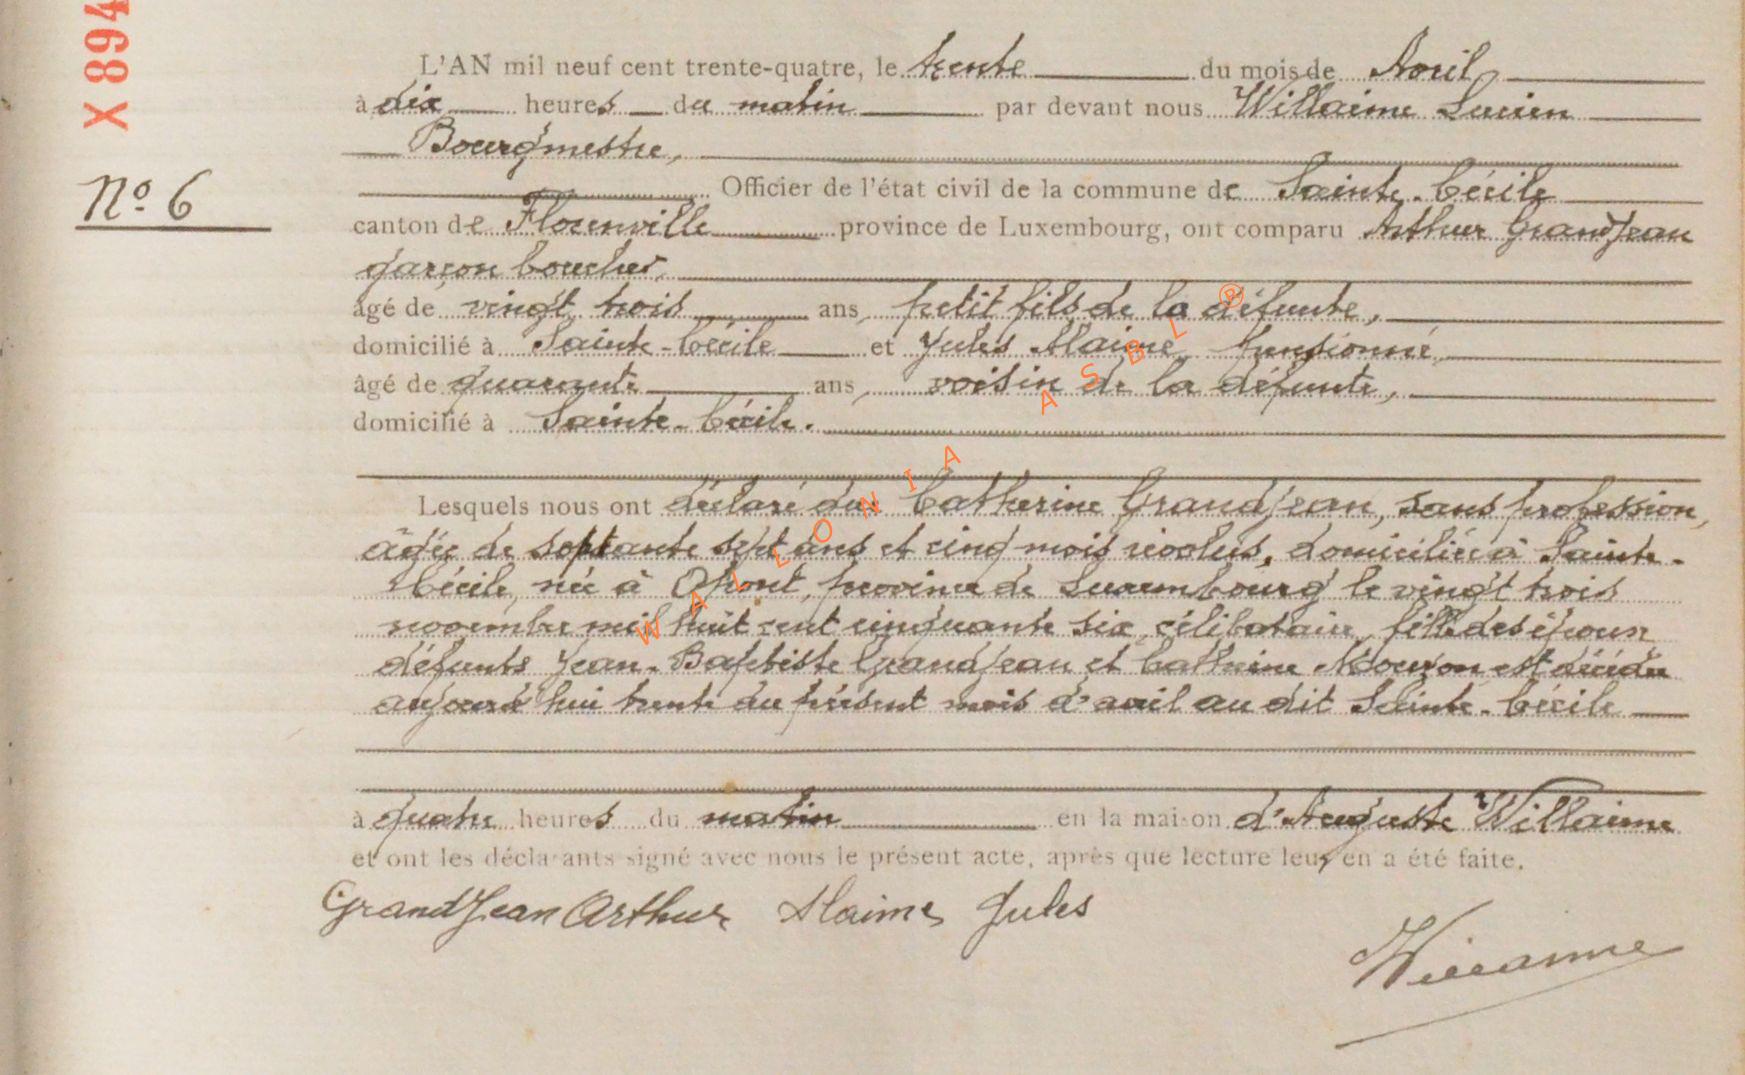 X 894
L'AN mil neuf cent trente-quatre, le trente du mois de Avril,
à dix heures du matin par devant nous Willaime Lucien
Bourgmestre,
Nº 6
Officier de l'état civil de la commune de Sainte-Cécile
canton de Florenville province de Luxembourg, ont comparu Arthur GrandJean
garçon boucher,
âgé de vingt trois ans, petit fils de la défunte,
domicilié à Sainte-Cécile et Jules Alaime, pensionné,
âgé de quarante ans, voisin de la défunte,
domicilié à Sainte-Cécile.
Lesquels nous ont déclaré que Catherine Grandjean, sans profession,
âgée de septante sept ans et cinq mois révolus, domiciliée à Sainte-
Cécile, née à Opont, province de Luxembourg le vingt trois
novembre mil huit cent cinquante six, célibataire, fille des époux
défunts Jean-Baptiste Grandjean et Catherine est décédée
aujourd'hui trente du présent mois d'avril au dit Sainte-Cécile
à quatre heures du matin en la maison d'Auguste Willaime
et ont les déclarants signé avec nous le présent acte, après que lecture leur en a été faite.
GrandJean Arthur Alaime Jules
Willaime
WALLONIA ASBL ®